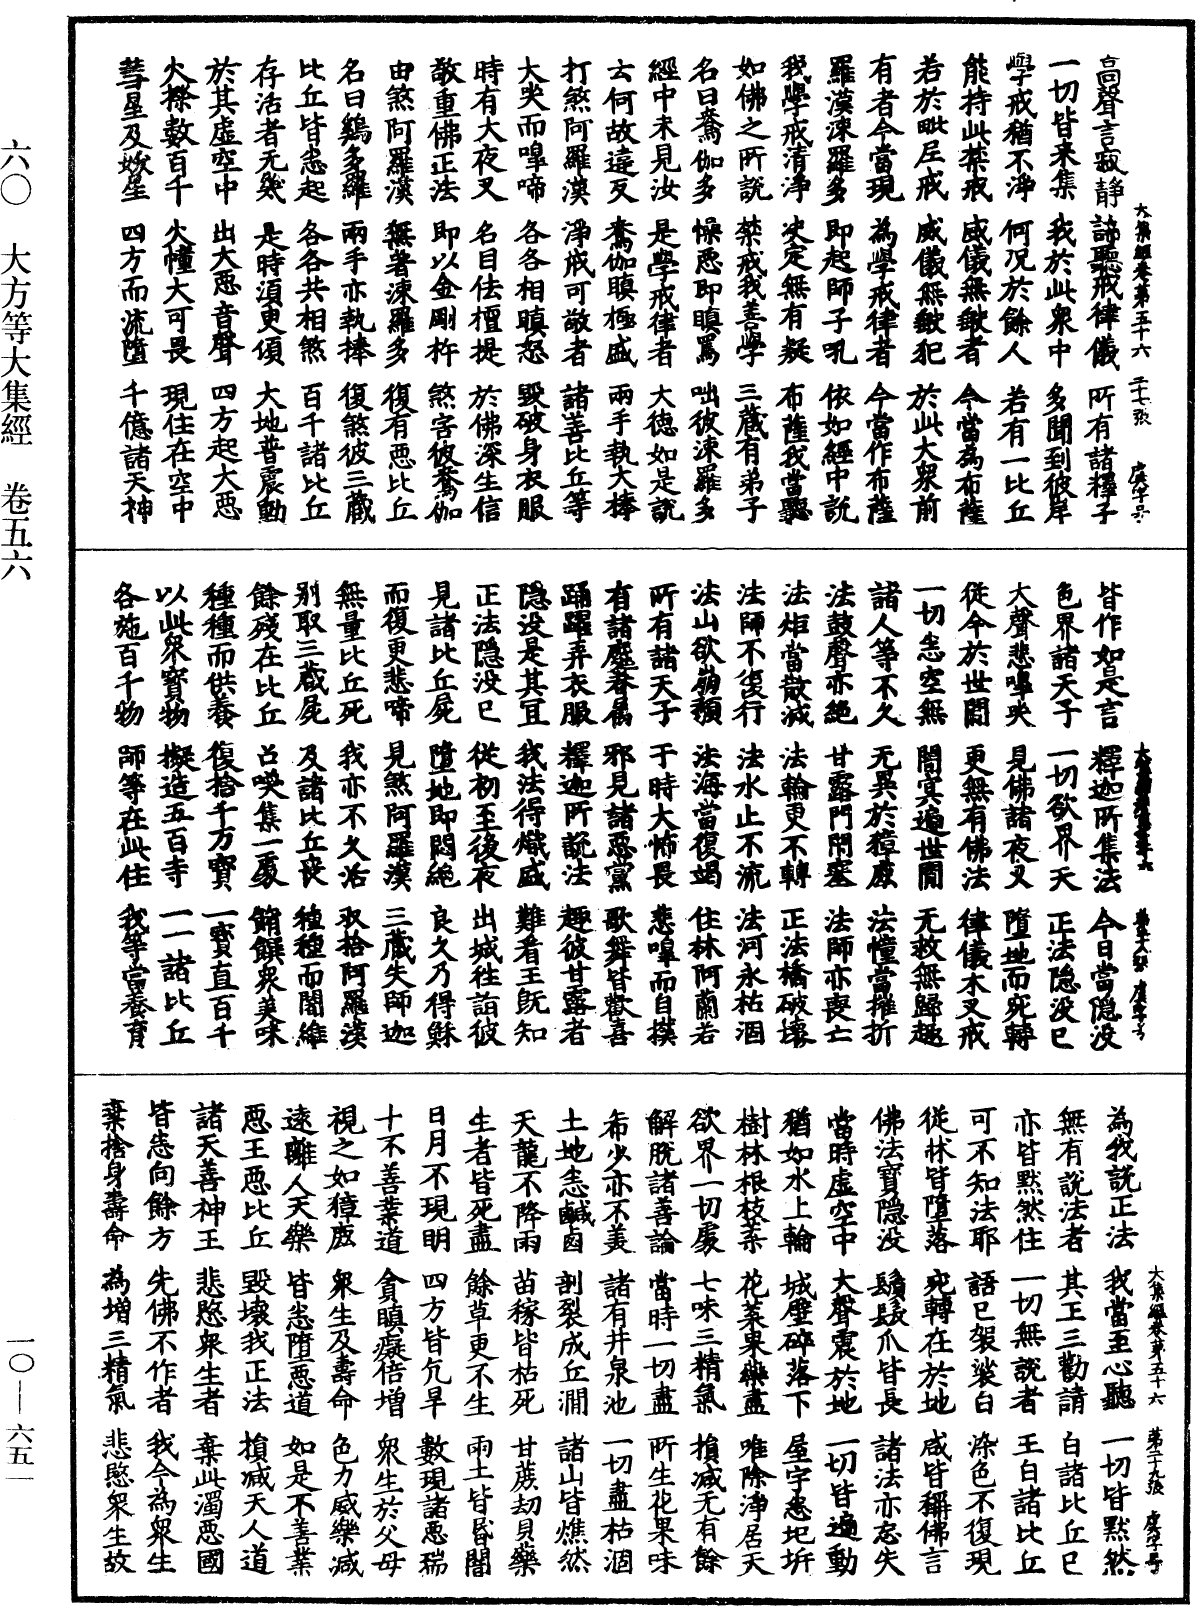 六〇　大方等大集經　卷五六
一〇—六五一
高聲言寂静　諦聽戒律儀　所有諸釋子
大集經卷第五十六　二十七張　虞字号
一切皆来集　我於此衆中　多聞到彼岸
學戒猶不淨　何況於餘人　若有一比丘
能持此禁戒　威儀無缺者　今當為布薩
若於毗尼戒　威儀無缺犯　於此大衆前
有者今當現　為學戒律者　今當作布薩
羅漢湅羅多　即起師子吼　依如經中説
我學戒清淨　决定無有疑　布薩我當聽
如佛之所説　禁戒我善學　三藏有弟子
名曰鴦伽多　懆惡即瞋罵　咄彼湅羅多
經中未見汝　是學戒律者　大德如是説
云何故違反　鴦伽瞋極盛　兩手執大棒
打煞阿羅漢　淨戒可敬者　諸善比丘等
大哭而嘷啼　各各相瞋怒　毀破身衣服
時有大夜叉　名目佉檀提　於佛深生信
敬重佛正法　即以金剛杵　煞害彼鴦伽
由煞阿羅漢　無著湅羅多　復有惡比丘
名曰鷄多羅　兩手亦執棒　復煞彼三藏
比丘皆忿起　各各共相煞　百千諸比丘
存活者无幾　是時須臾傾　大地普震動
於其虛空中　出大惡音聲　四方起大惡
火數百千　火幢大可畏　現住在空中
彗星及妖星　四方而流墮　千億諸天神
皆作如是言　釋迦所集法　今日當隱没
色界諸天子　一切欲界天　正法隱没已
大聲悲嘷哭　見佛諸夜叉　墮地而宛轉
從今於世間　更無有佛法　律儀木叉戒
一切悉空無　闇冥遍世間　无救無歸趣
諸人等不久　无異於獐鹿　法幢當摧折
法鼓聲亦絶　甘露門閇塞　法師亦喪亡
法炬當散滅　法輪更不轉　正法橋破壞
法師不復行　法水止不流　法河永枯涸
法山欲崩頽　法海當復竭　住林阿蘭若
所有諸天子　于時大怖畏　悲嘷而自撲
有諸魔眷屬　邪見諸惡黨　歌舞皆歡喜
踊躍弄衣服　釋迦所説法　趣彼甘露者
隱没是其宜　我法得熾盛　難看王既知
正法隱没已　從初至後夜　出城往詣彼
見諸比丘屍　墮地即悶絶　良久乃得穌
而復更悲啼　見煞阿羅漢　三藏失師迦
無量比丘死　我亦不久活　収拾阿羅漢
別取三藏屍　及諸比丘喪　種種而闍維
餘殘在比丘　召喚集一處　餚饌衆美味
種種而供養　復捨千万寳　一寳直百千
以此衆寳物　擬造五百寺　一一諸比丘
各施百千物　師等在此住　我等當養育
為我説正法　我當至心聽　一切皆黙然
大集經卷第五十六　第二十九張　虞字号
無有説法者　其王三勸請　白諸比丘已
亦皆黙然住　一切無説者　王白諸比丘
可不知法耶　語已袈裟白　染色不復現
從牀皆墮落　宛轉在於地　咸皆稱佛言
佛法寳隱没　鬚髮爪皆長　諸法亦忘失
當時虛空中　大聲震於地　一切皆遍動
猶如水上輪　城壁碎落下　屋宇悉圮坼
樹林根枝葉　花葉果藥盡　唯除淨居天
欲界一切處　七味三精氣　損減无有餘
解脱諸善論　當時一切盡　所生花果味
希少亦不美　諸有井泉池　一切盡枯涸
土地悉鹹鹵　剖裂成丘澗　諸山皆燋然
天龍不降雨　苗稼皆枯死　甘蔗劫貝藥
生者皆死盡　餘草更不生　雨土皆昏闇
日月不現明　四方皆亢旱　數現諸惡瑞
十不善業道　貪瞋癡倍增　衆生於父母
視之如獐鹿　衆生及壽命　色力威樂減
遠離人天樂　皆悉墮惡道　如是不善業
惡王惡比丘　毀壞我正法　損減天人道
諸天善神王　悲愍衆生者　棄此濁惡國
皆悉向餘方　先佛不作者　我今為衆生
棄捨身壽命　為增三精氣　悲愍衆生故